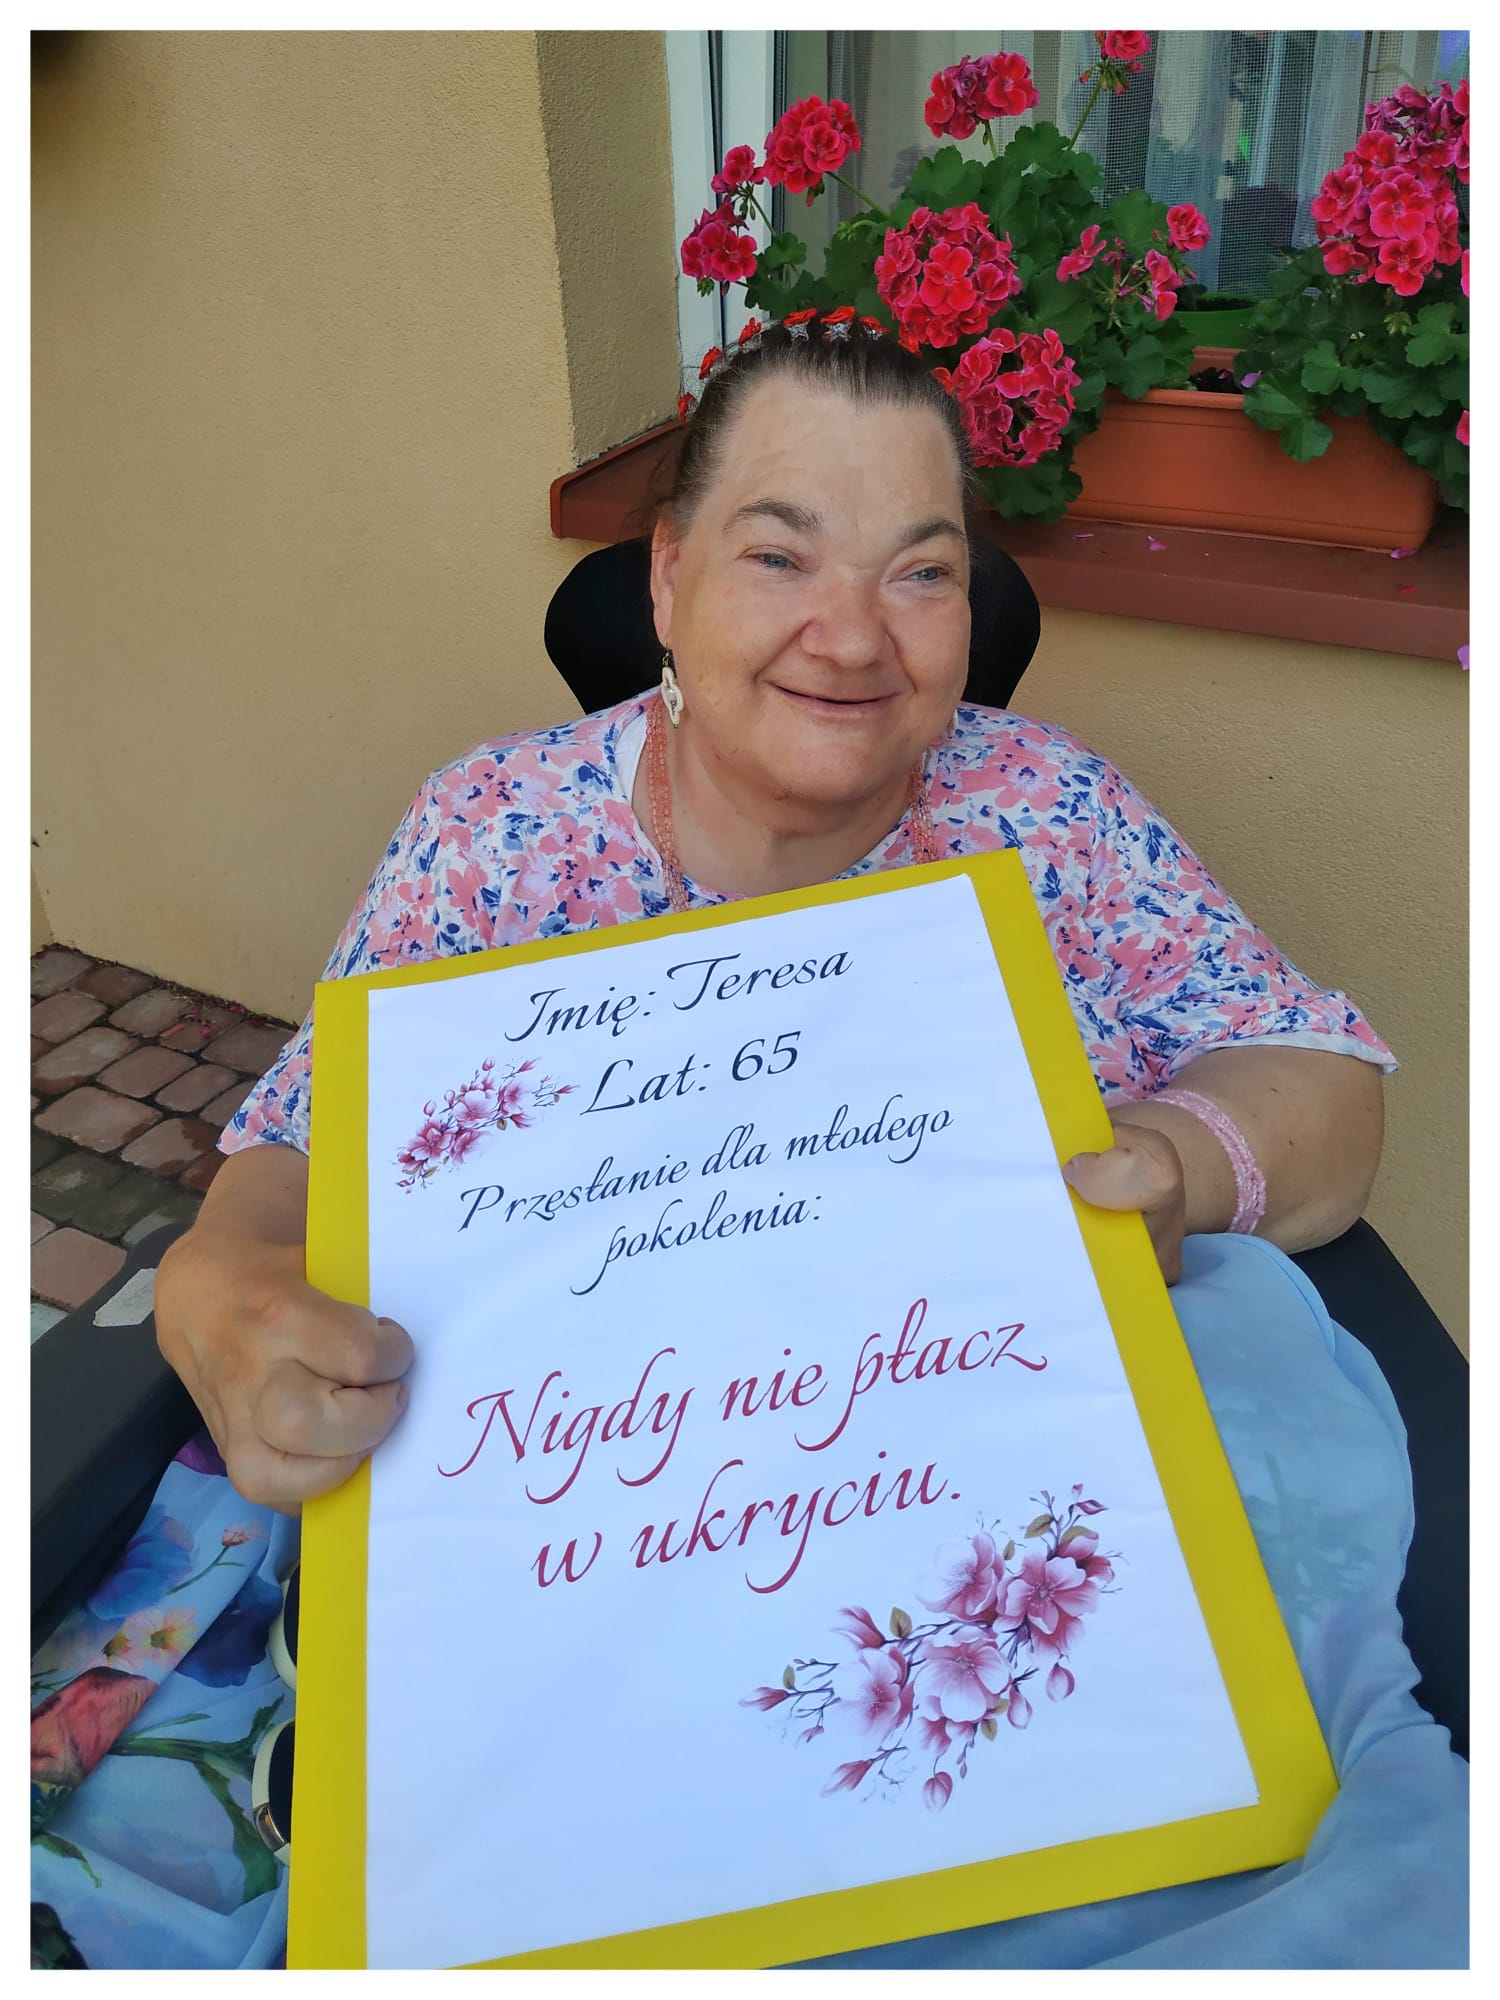 Imię: Teresa
Lat: 65
Przesłanie dla młodego
pokolenia:
Nigdy nie płacz
w ukryciu.